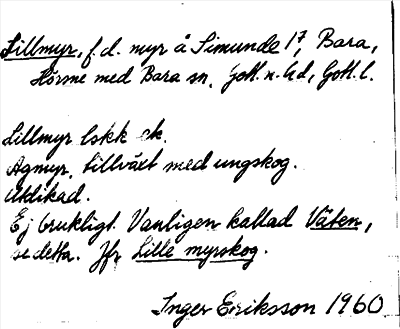 Lillmyr, f.d. myr å Simunde 1⁷, Bara,
Hörsne med Bara sn, Gotl. n. hd, Gotl. l.
Lillmyr lskk ek.
Agmyr, tillväxt med ungskog.
Utdikad.
Ej brukligt. Vanligen kallad Väten,
se detta. Jfr Lille myrskog.
Inger Eriksson 1960